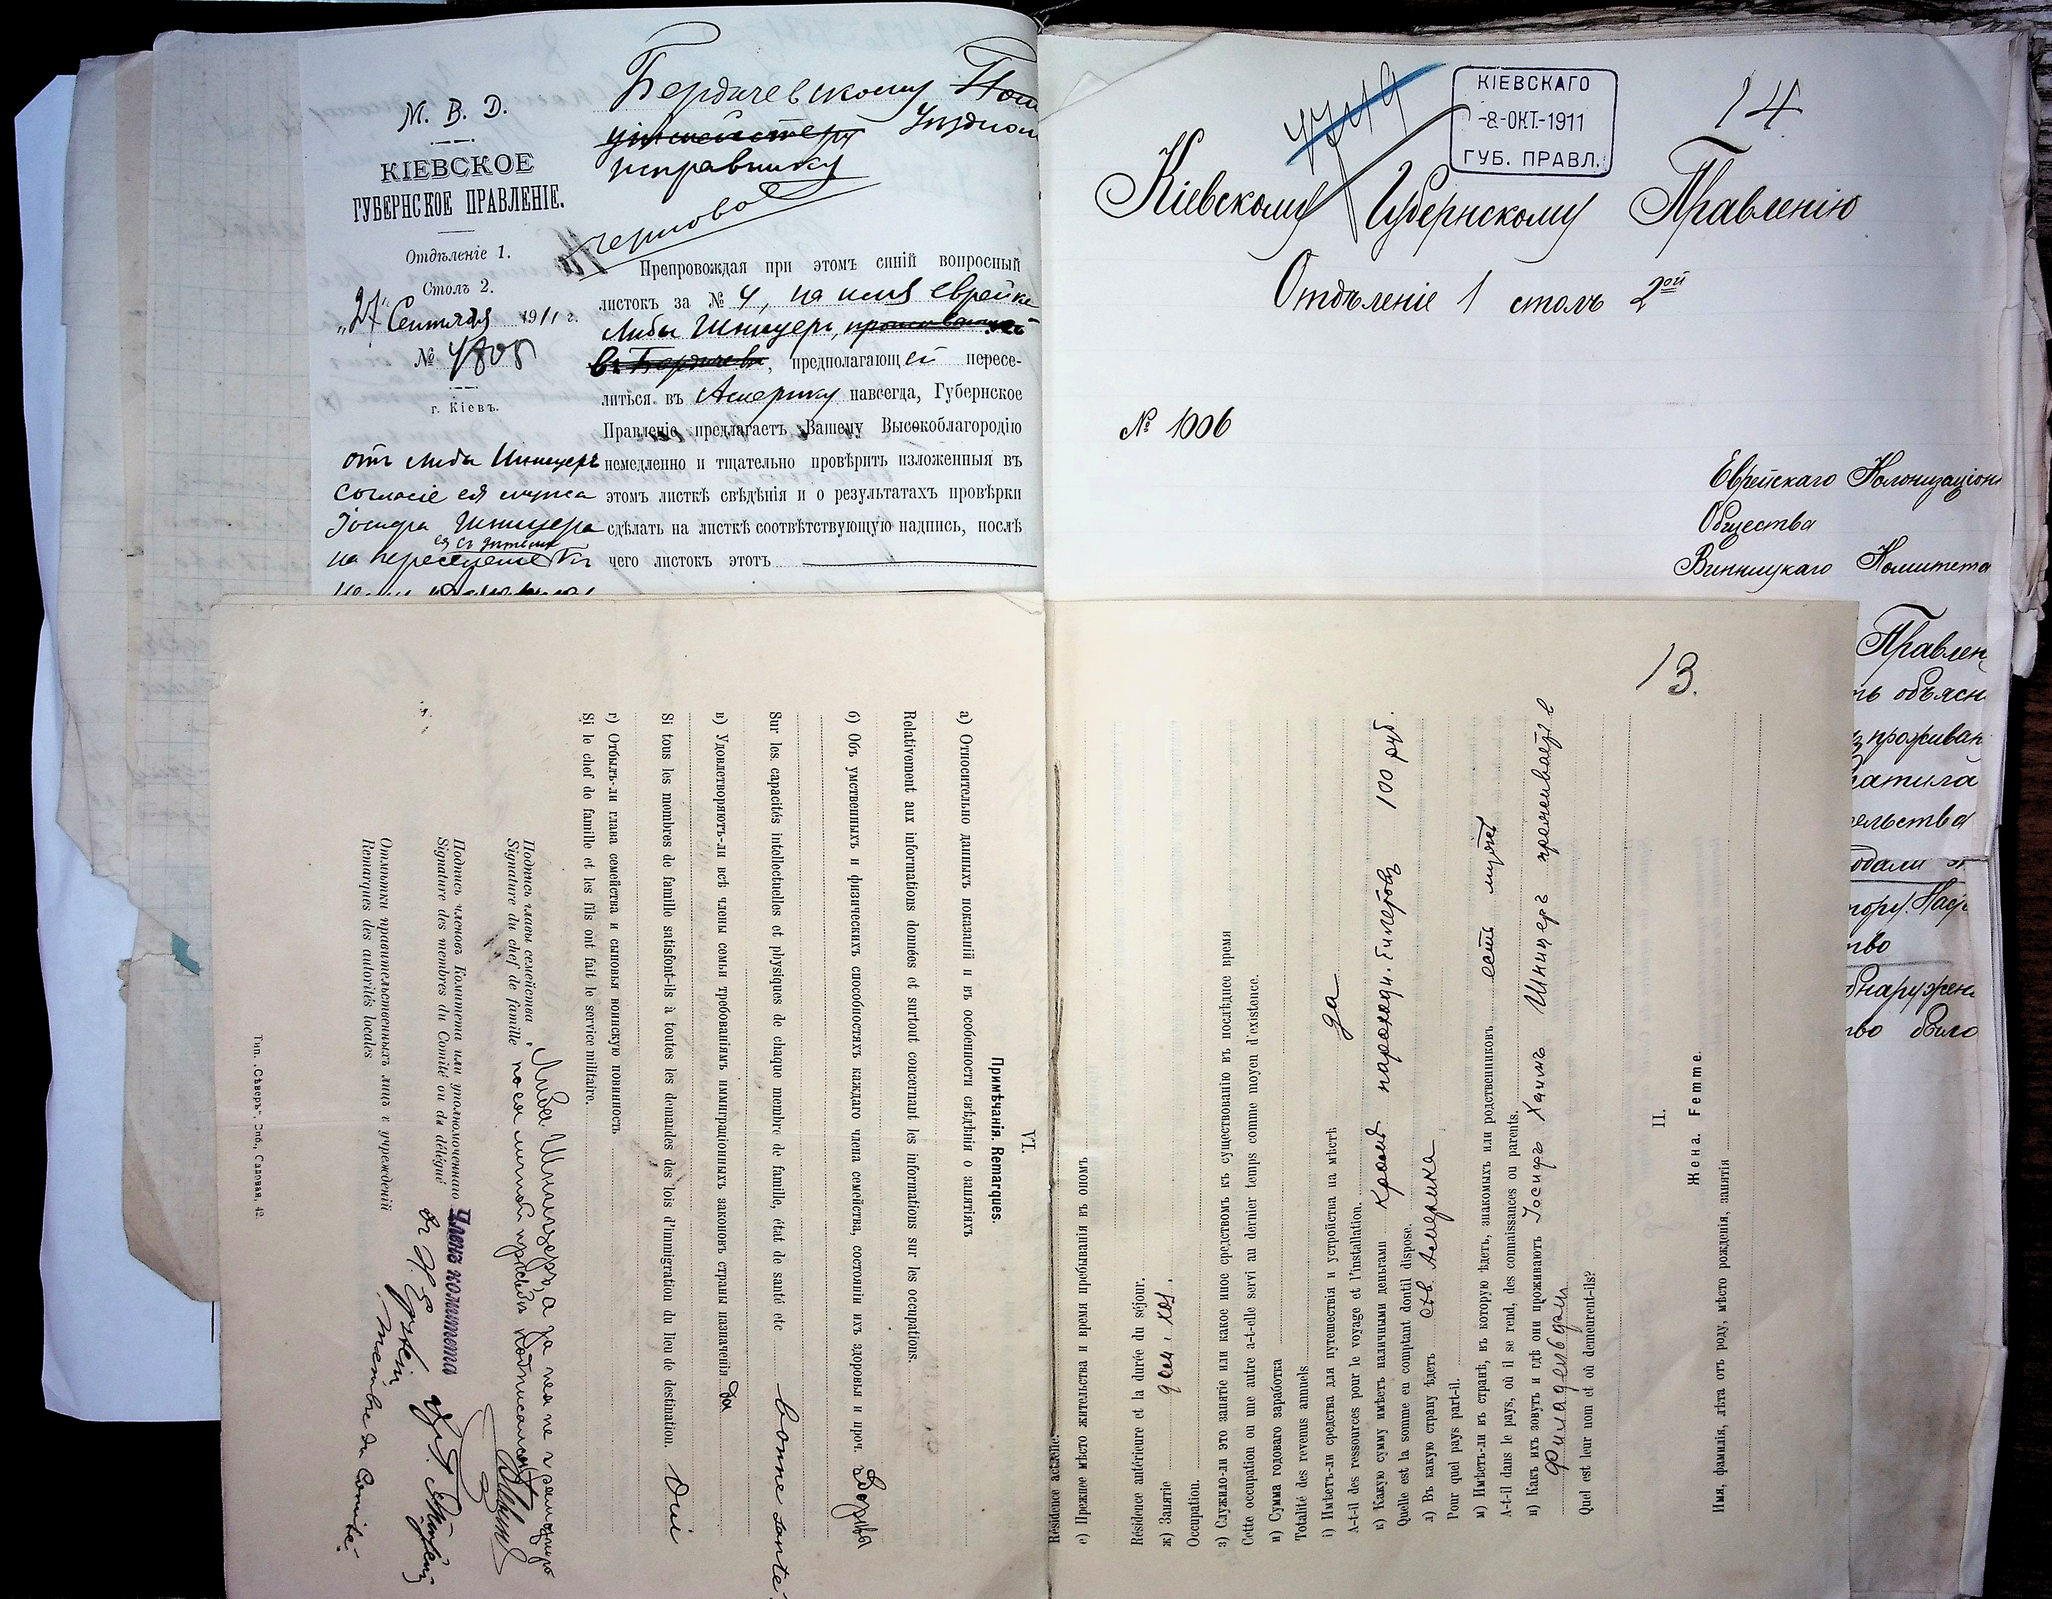 М. В. Д.
КІЕВСКОЕ
ГУБЕРНСКОЕ ПРАВЛЕНІЕ.
Отдѣленіе 1.
Столъ 2.
„27" Сентября 1911 г.
№ 4805
г. Кіевъ.
отъ Либы Шницеръ
согласіе ея мужа
Іосифа Шницера
ея съ дѣтьми
на переселеніе
Бердичевскому
Уѣздном
исправнику
Препровождая при этомъ синій вопросный
листокъ за № 4, на имя Еврейки
Либы Шницеръ,
въ Бердичевѣ, предполагающей пересе-
литься въ Америку навсегда, Губернское
Правленіе предлагаетъ Вашему Высокоблагородію
немедленно и тщательно провѣрить изложенныя въ
этомъ листкѣ свѣдѣнія и о результатахъ провѣрки
сдѣлать на листкѣ соотвѣтствующую надпись, послѣ
чего листокъ этотъ
КІЕВСКАГО
-8-ОКТ.-1911
ГУБ. ПРАВЛ.
14
Кіевскому Губернскому Правленію
Отдѣленіе 1 столъ 2ой
№ 1006
Еврейскаго Колонизаціонн
Общества
Винницкаго Комитета
Правлен
ть объясн
проживан
ельства
одали
тво
бнаружен
тво было
VI.
Примѣчанія. Remarques.
а) Относительно данныхъ показаній и въ особенности свѣдѣнія о занятіяхъ
Relativement aux informations données et surtout concernant les informations sur les occupations.
б) Объ умственныхъ и физическихъ способностяхъ каждаго члена семейства, состояніи ихъ здоровья и проч. Здоровы
Sur les capacités intellectuelles et physiques de chaque membre de famille, état de santé etc bonne santé
в) Удовлетворяютъ-ли всѣ члены семьи требованіямъ иммиграціонныхъ законовъ страны назначенія Да
Si tous les membres de famille satisfont-ils à toutes les demandes des lois d'immigration du lieu de destination. Oui
г) Отбылъ-ли глава семейства и сыновья воинскую повинность
Si le chef de famille et les fils ont fait le service militaire.
Подпись главы семейства Либа Шницеръ, а за нея не грамотную
Signature du chef de famille по ея личной просьбѣ подписался
Подпись членовъ Комитета или уполномоченнаго Члена комитета
Signature des membres du Comité ou du délégué
membre du Comité.
Отмѣтки правительственныхъ лицъ и учрежденій
Remarques des autorités locales
Тип. „Сѣверъ", Спб., Садовая, 42.
13.
Résidence actuelle.
е) Прежнее мѣсто жительства и время пребыванія въ ономъ
Résidence antérieure et la durée du séjour.
ж) Занятіе дом. хоз.
Occupation.
з) Служило-ли это занятіе или какое иное средствомъ къ существованію въ послѣднее время
Cette occupation ou une autre a-t-elle servi au dernier temps comme moyen d'existence.
и) Сумма годоваго заработка
Totalité des revenus annuels
і) Имѣетъ-ли средства для путешествія и устройства на мѣстѣ да
A-t-il des ressources pour le voyage et l'installation.
к) Какую сумму имѣетъ наличными деньгами кромѣ пароход. билетовъ 100 руб.
Quelle est la somme en comptant dontil dispose.
л) Въ какую страну ѣдетъ Сѣв Америка
Pour quel pays part-il.
м) Имѣетъ-ли въ странѣ, въ которую ѣдетъ, знакомыхъ или родственниковъ есть мужъ
A-t-il dans le pays, où il se rend, des connaissances ou parents.
н) Какъ ихъ зовутъ и гдѣ они проживаютъ Іосифъ Хаимъ Шницеръ проживаетъ в
Филадельфіи
Quel est leur nom et où demeurent-ils?
II.
Жена. Femme.
Имя, фамилія, лѣта отъ роду, мѣсто рожденія, занятія